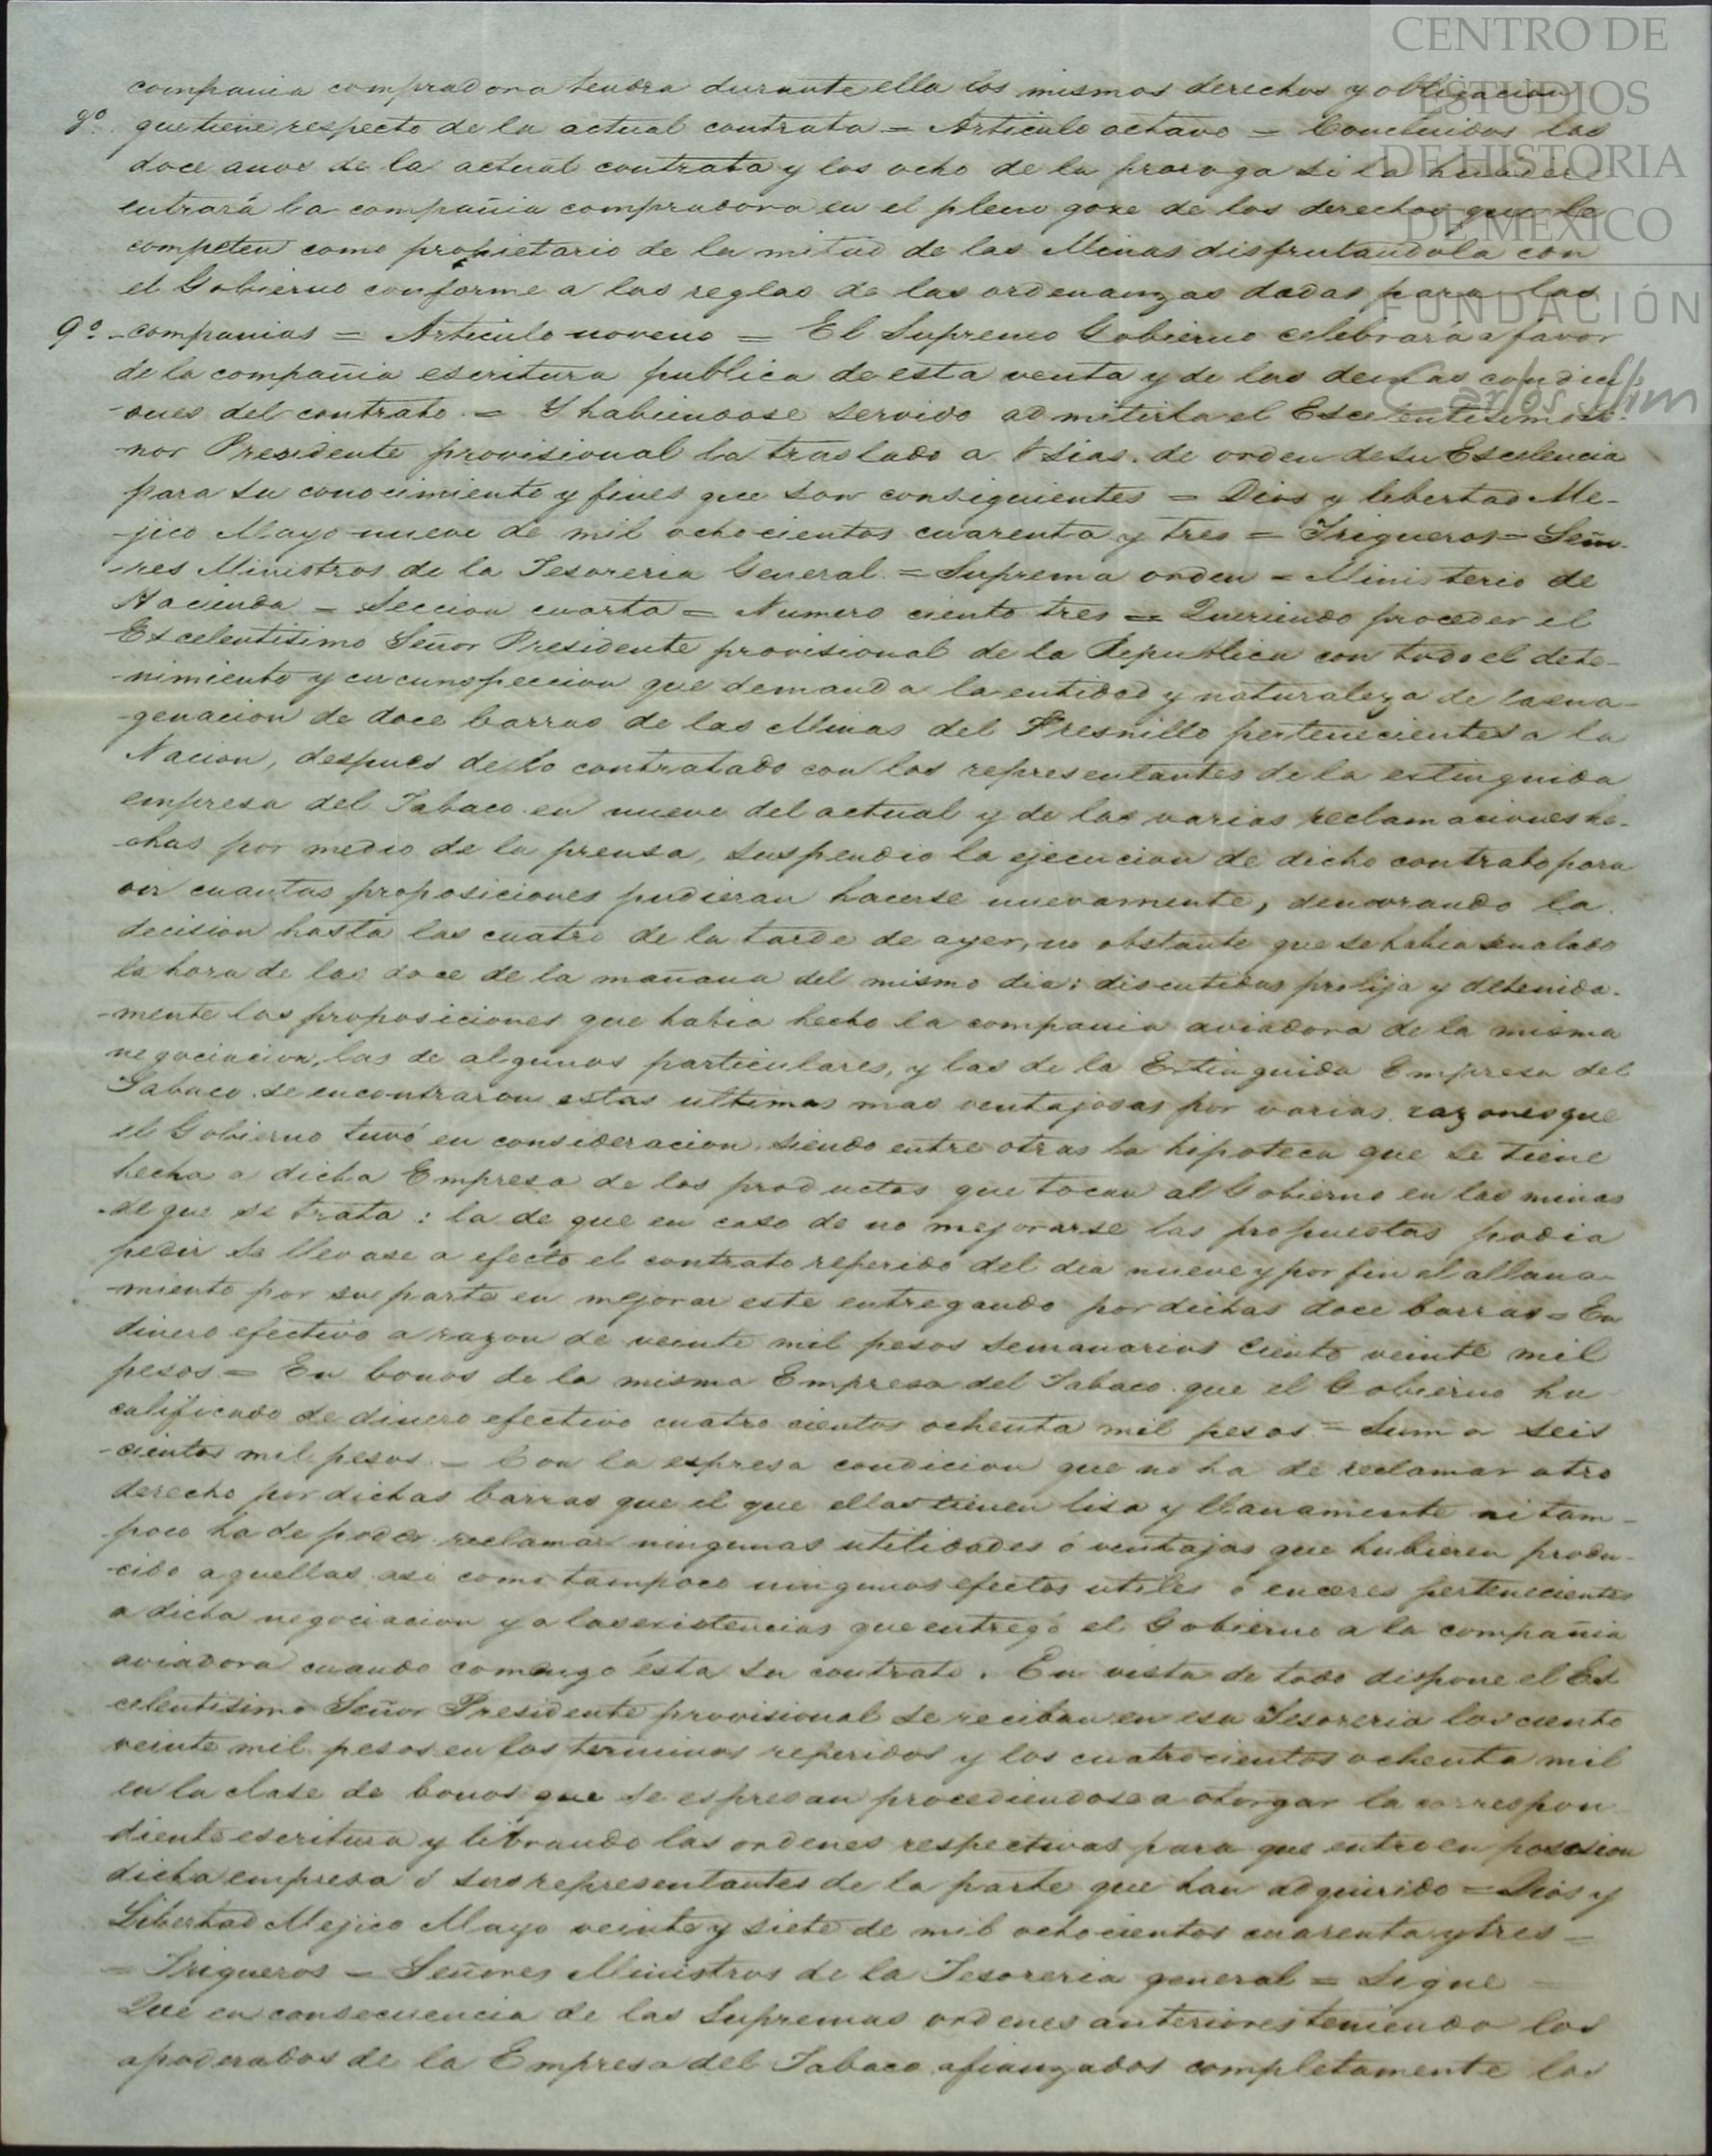 CENTRO DE
ESTUDIOS
DE HISTORIA
DE MEXICO
FUNDACIÓN
Carlos Slim
compañia compradora tendra durante ella los mismos derechos y obligacion
8º. que tiene respecto de la actual contrata = Articulo octavo = Concluidos los
doce anos de la actual contrata y los ocho de la proroga si la hubiere
entrará la compañia compradora en el pleno goze de los derechos que le
competen como propietario de la mitad de las Minas disfrutandola con
el Gobierno conforme a las reglas de las ordenanzas dadas para las
9º - companias = Articulo noveno = El Supremo Gobierno celebrará a favor
de la compañia escritura publica de esta venta y de las demas condici
-ones del contrato = Y habiendose servido admitirla el Escelentisimo Se-
-nor Presidente provisional la traslado a Vsias. de orden de su Escelencia
para su conocimiento y fines que son consiguientes = Dios y libertad Me-
-jico Mayo nueve de mil ochocientos cuarenta y tres = Trigueros = Seño-
-res Ministros de la Tesoreria General = Suprema orden = Ministerio de
Hacienda = Seccion cuarta = Numero ciento tres = Queriendo proceder el
Escelentisimo Señor Presidente provisional de la Republica con todo el dete-
-nimiento y circunspeccion que demanda la entidad y naturaleza de la ena-
-genacion de doce barras de las Minas del Fresnillo pertenecientes a la
Nacion, despues de lo contratado con los representantes de la estinguida
empresa del Tabaco en nueve del actual y de las varias reclamaciones he-
-chas por medio de la prensa, suspendio la ejecucion de dicho contrato para
oir cuantas proposiciones pudieran hacerse nuevamente, demorando la
decision hasta las cuatro de la tarde de ayer, no obstante que se habia senalado
la hora de las doce de la mañana del mismo dia: discutidas prolija y detenida-
-mente las proposiciones que habia hecho la compania aviadora de la misma
negociacion, las de algunos particulares, y las de la Estinguida Empresa del
Tabaco. se encontraron estas ultimas mas ventajosas por varias razones que
el Gobierno tuvó en consideracion, siendo entre otras la hipoteca que se tiene
hecha a dicha Empresa de los productos que tocan al Gobierno en las minas
de que se trata: la de que en caso de no mejorarse las propuestas podia
pedir se llevase a efecto el contrato referido del dia nueve y por fin el allana-
-miento por su parte en mejorar este entregando por dichas doce barras = En
dinero efectivo a razon de veinte mil pesos semanarios ciento veinte mil
pesos = En bonos de la misma Empresa del Tabaco que el Gobierno ha
calificado de dinero efectivo cuatro cientos ochenta mil pesos = Suma seis
-cientos mil pesos. = Con la espresa condicion que no ha de reclamar otro
derecho por dichas barras que el que ellas tienen lisa y llanamente ni tam-
poco ha de poder reclamar ningunas utilidades ó ventajas que hubieren produ-
-cido aquellas asi como tampoco ningunos efectos utiles o enceres pertenecientes
a dicha negociacion y a las existencias que entregó el Gobierno a la compañia
aviadora cuando comenzo ésta su contrato. En vista de todo dispone el Es
celentisimo Señor Presidente provisional se reciban en esa Tesoreria los ciento
veinte mil pesos en los terminos referidos y los cuatrocientos ochenta mil
en la clase de bonos que se espresan procediendose a otorgar la correspon
diente escritura y librando las ordenes respectivas para que entre en posesion
dicha empresa ó sus representantes de la parte que han adquirido = Dios y
Libertad Mejico Mayo veinte y siete de mil ochocientos cuarenta y tres =
= Trigueros = Señores Ministros de la Tesoreria general = Sigue =
Que en consecuencia de las Supremas ordenes anteriores teniendo los
apoderados de la Empresa del Tabaco afianzados completamente los